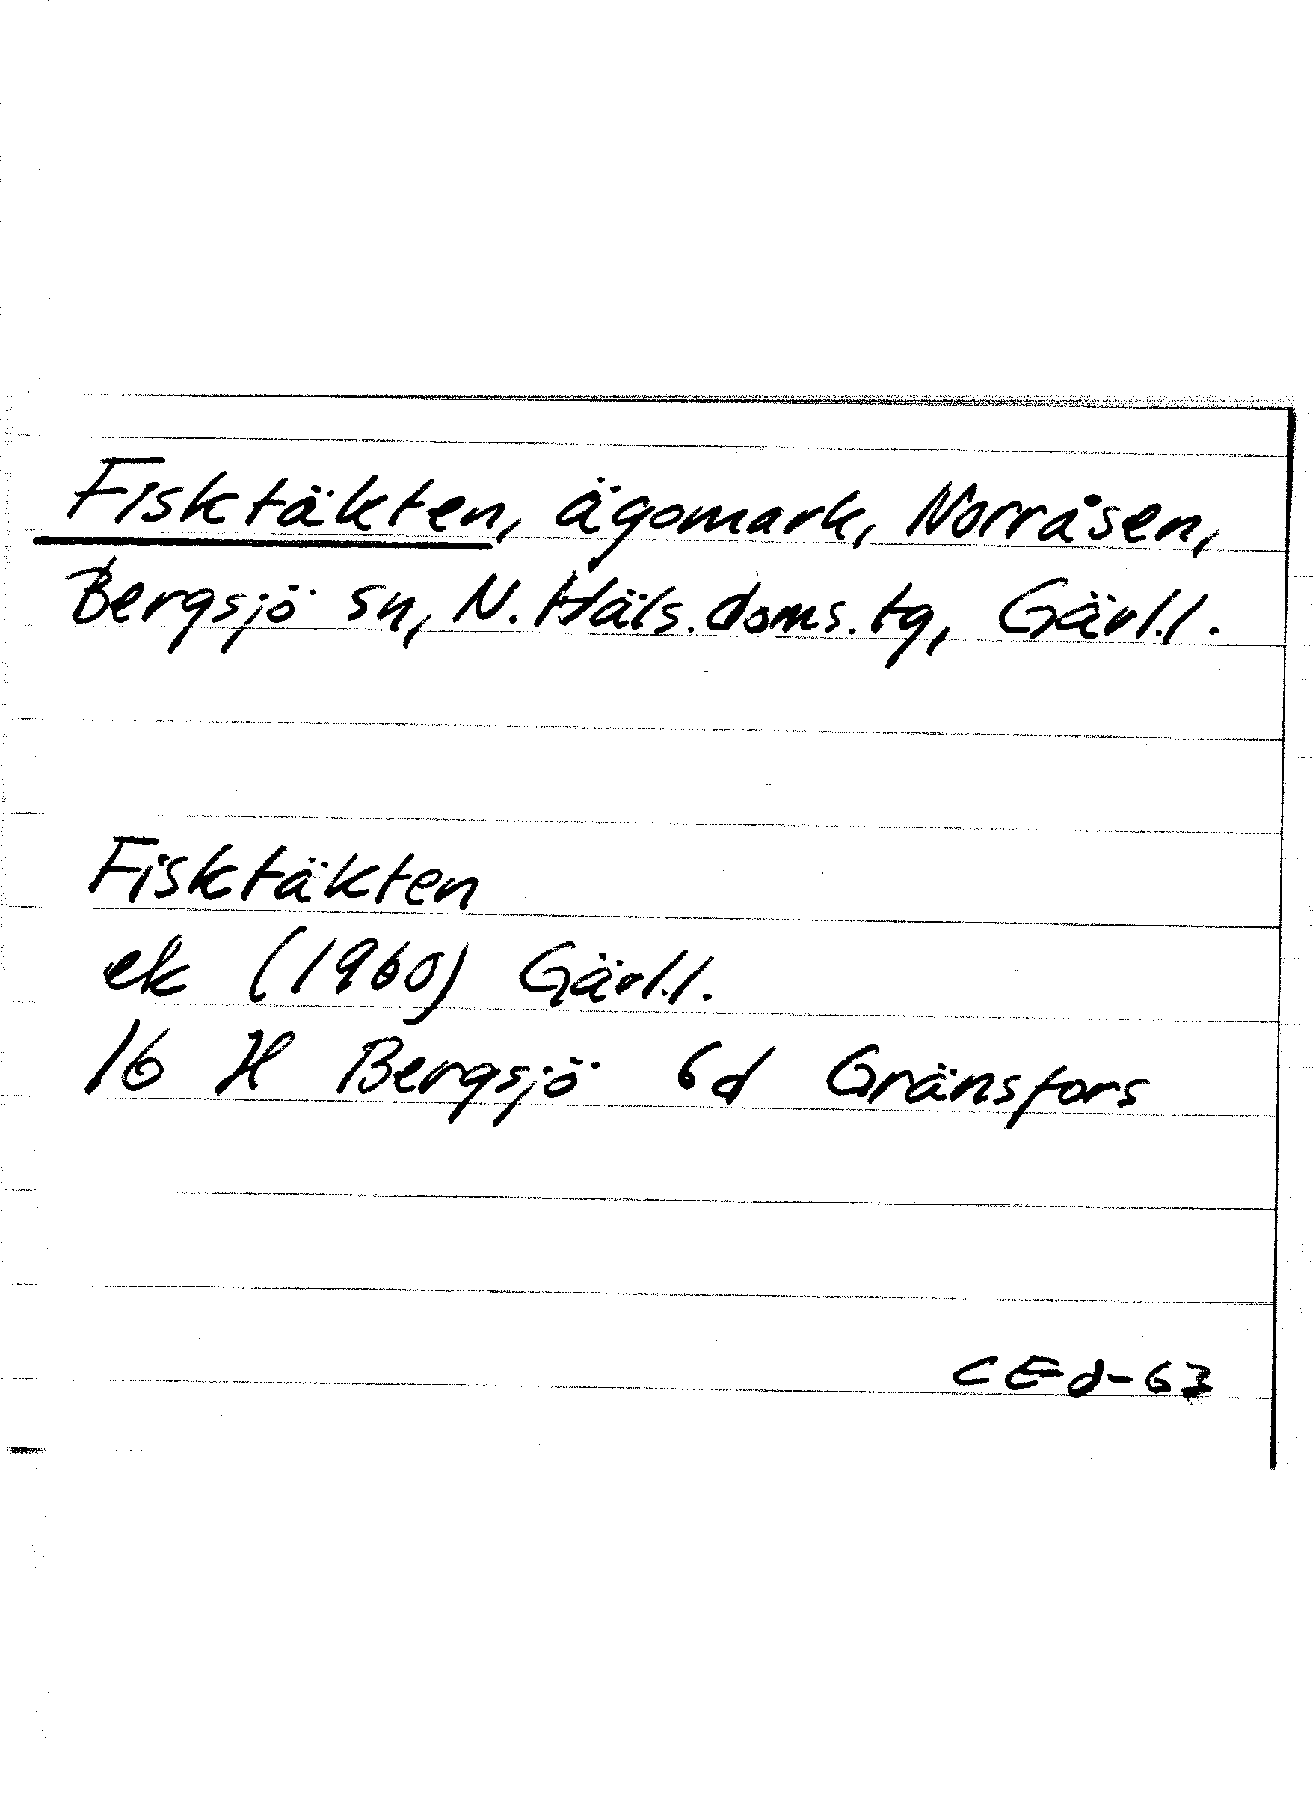 Fisktäkten, ägomark, Norråsen,
Bergsjö sn, N. Häls. doms. tg, Gävl.l.
Fisktäkten
ek (1960) Gävl.l.
16 H Bergsjö 6d Gränsfors
CEd-63